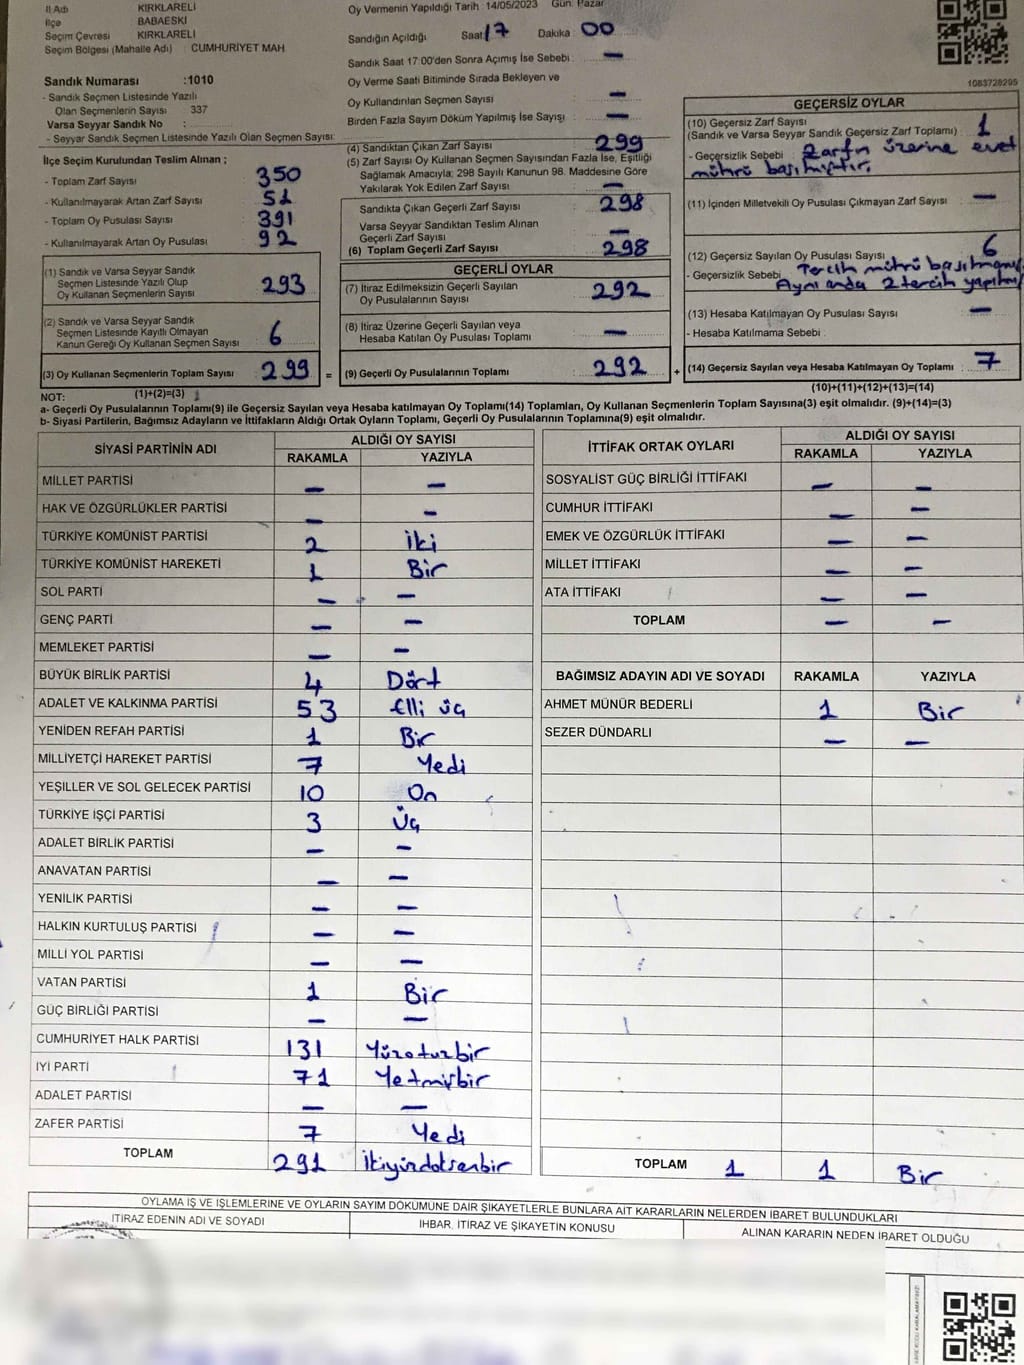 İl Adı : KIRKLARELİ
İlçe : BABAESKİ
Seçim Çevresi : KIRKLARELİ
Seçim Bölgesi (Mahalle Adı) : CUMHURİYET MAH
Sandık Numarası :1010
- Sandık Seçmen Listesinde Yazılı
Olan Seçmenlerin Sayısı : 337
Varsa Seyyar Sandık No :
- Seyyar Sandık Seçmen Listesinde Yazılı Olan Seçmen Sayısı:
İlçe Seçim Kurulundan Teslim Alınan ;
- Toplam Zarf Sayısı : 350
- Kullanılmayarak Artan Zarf Sayısı : 51
- Toplam Oy Pusulası Sayısı : 391
- Kullanılmayarak Artan Oy Pusulası : 92
(1) Sandık ve Varsa Seyyar Sandık
Seçmen Listesinde Yazılı Olup
Oy Kullanan Seçmenlerin Sayısı : 293
(2) Sandık ve Varsa Seyyar Sandık
Seçmen Listesinde Kayıtlı Olmayan
Kanun Gereği Oy Kullanan Seçmen Sayısı : 6
(3) Oy Kullanan Seçmenlerin Toplam Sayısı : 299 =
(1)+(2)=(3)
Oy Vermenin Yapıldığı Tarih : 14/05/2023 Gün: Pazar
Sandığın Açıldığı Saat 17 Dakika : 00
Sandık Saat 17:00'den Sonra Açımış İse Sebebi : —
Oy Verme Saati Bitiminde Sırada Bekleyen ve
Oy Kullandırılan Seçmen Sayısı : —
Birden Fazla Sayım Döküm Yapılmış İse Sayısı : —
(4) Sandıktan Çıkan Zarf Sayısı : 299
(5) Zarf Sayısı Oy Kullanan Seçmen Sayısından Fazla İse, Eşitliği
Sağlamak Amacıyla; 298 Sayılı Kanunun 98. Maddesine Göre
Yakılarak Yok Edilen Zarf Sayısı : —
Sandıkta Çıkan Geçerli Zarf Sayısı : 298
Varsa Seyyar Sandıktan Teslim Alınan
Geçerli Zarf Sayısı : —
(6) Toplam Geçerli Zarf Sayısı : 298
GEÇERLİ OYLAR
(7) İtiraz Edilmeksizin Geçerli Sayılan
Oy Pusulalarının Sayısı : 292
(8) İtiraz Üzerine Geçerli Sayılan veya
Hesaba Katılan Oy Pusulası Toplamı : —
(9) Geçerli Oy Pusulalarının Toplamı : 292 +
1083728295
GEÇERSİZ OYLAR
(10) Geçersiz Zarf Sayısı : 1
(Sandık ve Varsa Seyyar Sandık Geçersiz Zarf Toplamı)
- Geçersizlik Sebebi : Zarfın üzerine evet
mührü basılmıştır.
(11) İçinden Milletvekili Oy Pusulası Çıkmayan Zarf Sayısı : —
(12) Geçersiz Sayılan Oy Pusulası Sayısı : 6
- Geçersizlik Sebebi : Tercih mührü
Aynı anda 2 tercih
(13) Hesaba Katılmayan Oy Pusulası Sayısı : —
- Hesaba Katılmama Sebebi :
(14) Geçersiz Sayılan veya Hesaba Katılmayan Oy Toplamı : 7
(10)+(11)+(12)+(13)=(14)
NOT:
a- Geçerli Oy Pusulalarının Toplamı(9) ile Geçersiz Sayılan veya Hesaba katılmayan Oy Toplamı(14) Toplamları, Oy Kullanan Seçmenlerin Toplam Sayısına(3) eşit olmalıdır. (9)+(14)=(3)
b- Siyasi Partilerin, Bağımsız Adayların ve İttifakların Aldığı Ortak Oyların Toplamı, Geçerli Oy Pusulalarının Toplamına(9) eşit olmalıdır.
SİYASİ PARTİNİN ADI ALDIĞI OY SAYISI
RAKAMLA YAZIYLA
MİLLET PARTİSİ — —
HAK VE ÖZGÜRLÜKLER PARTİSİ — —
TÜRKİYE KOMÜNİST PARTİSİ 2 İki
TÜRKİYE KOMÜNİST HAREKETİ 1 Bir
SOL PARTİ — —
GENÇ PARTİ — —
MEMLEKET PARTİSİ — —
BÜYÜK BİRLİK PARTİSİ 4 Dört
ADALET VE KALKINMA PARTİSİ 53 Elli üç
YENİDEN REFAH PARTİSİ 1 Bir
MİLLİYETÇİ HAREKET PARTİSİ 7 Yedi
YEŞİLLER VE SOL GELECEK PARTİSİ 10 On
TÜRKİYE İŞÇİ PARTİSİ 3 Üç
ADALET BİRLİK PARTİSİ — —
ANAVATAN PARTİSİ — —
YENİLİK PARTİSİ — —
HALKIN KURTULUŞ PARTİSİ — —
MİLLİ YOL PARTİSİ — —
VATAN PARTİSİ 1 Bir
GÜÇ BİRLİĞİ PARTİSİ — —
CUMHURİYET HALK PARTİSİ 131 Yüzotuzbir
İYİ PARTİ 71 Yetmişbir
ADALET PARTİSİ — —
ZAFER PARTİSİ 7 Yedi
TOPLAM 291 İkiyüzdoksanbir
İTTİFAK ORTAK OYLARI ALDIĞI OY SAYISI
RAKAMLA YAZIYLA
SOSYALİST GÜÇ BİRLİĞİ İTTİFAKI — —
CUMHUR İTTİFAKI — —
EMEK VE ÖZGÜRLÜK İTTİFAKI — —
MİLLET İTTİFAKI — —
ATA İTTİFAKI — —
TOPLAM — —
BAĞIMSIZ ADAYIN ADI VE SOYADI RAKAMLA YAZIYLA
AHMET MÜNÜR BEDERLİ 1 Bir
SEZER DÜNDARLI — —
TOPLAM 1 1 Bir
OYLAMA İŞ VE İŞLEMLERİNE VE OYLARIN SAYIM DÖKÜMÜNE DAİR ŞİKAYETLERLE BUNLARA AİT KARARLARIN NELERDEN İBARET BULUNDUKLARI
İTİRAZ EDENİN ADI VE SOYADI
İHBAR, İTİRAZ VE ŞİKAYETİN KONUSU
ALINAN KARARIN NEDEN İBARET OLDUĞU